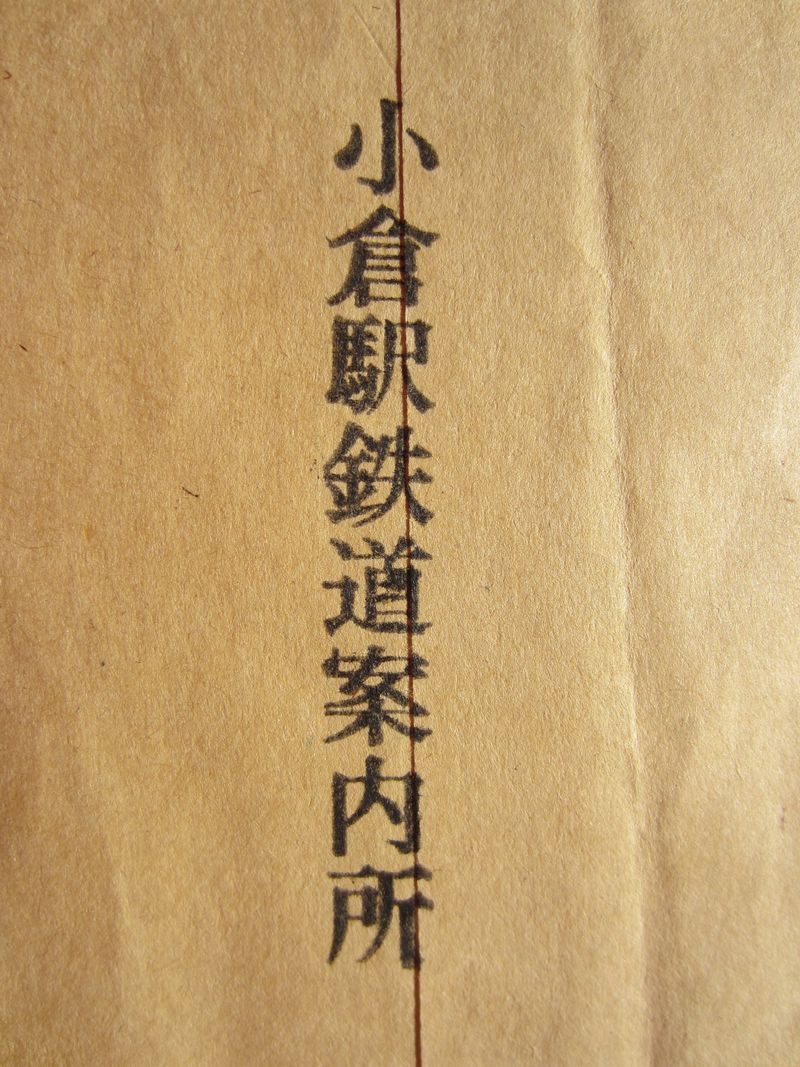 小倉駅鉄道案内所